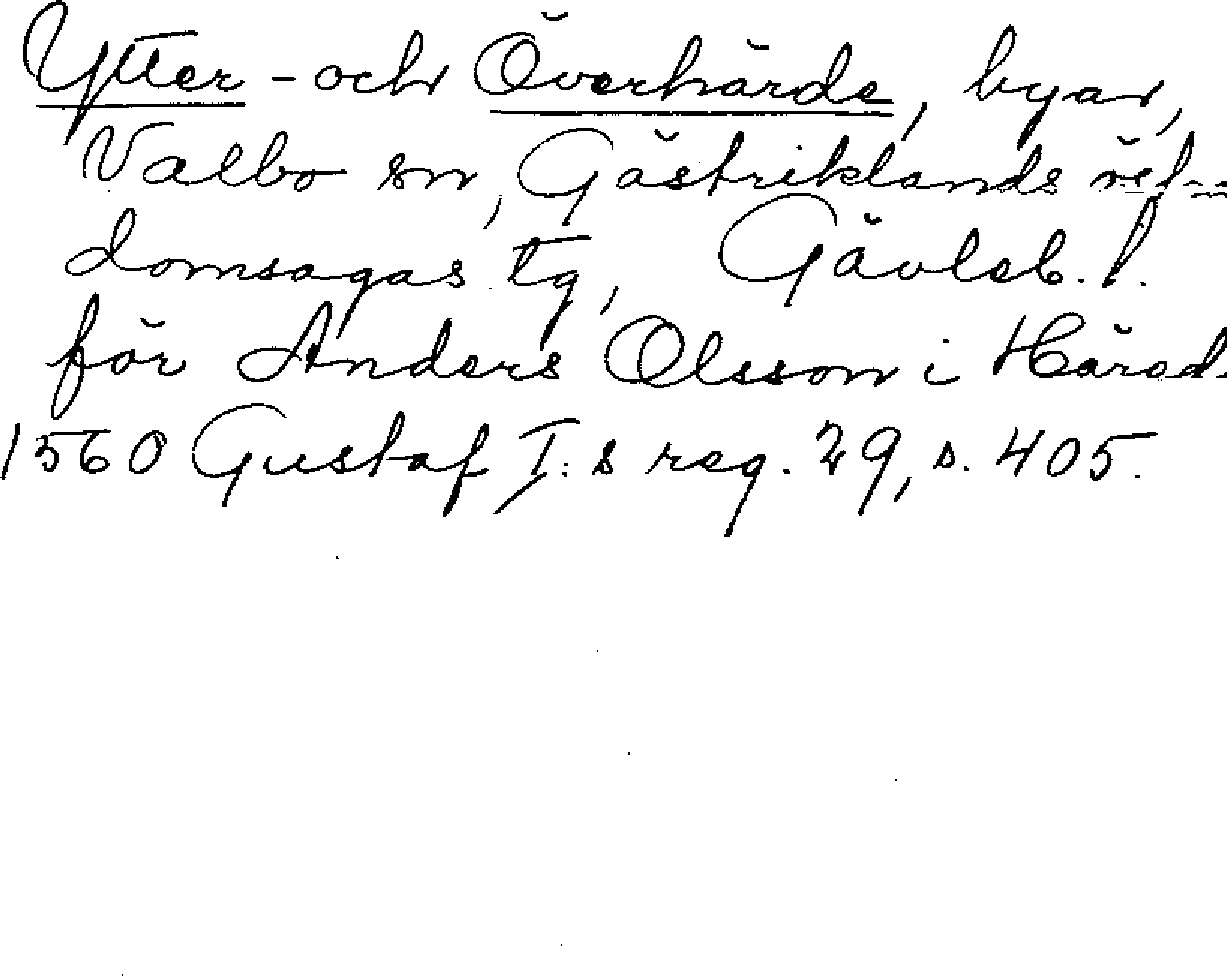 Ytter- och Överhärde, byar,
Valbo sn, Gästriklands
domsagas tg, Gävleb. l.
för Anders Olsson i Häred.
1560 Gustaf I:s reg. 29, s. 405.